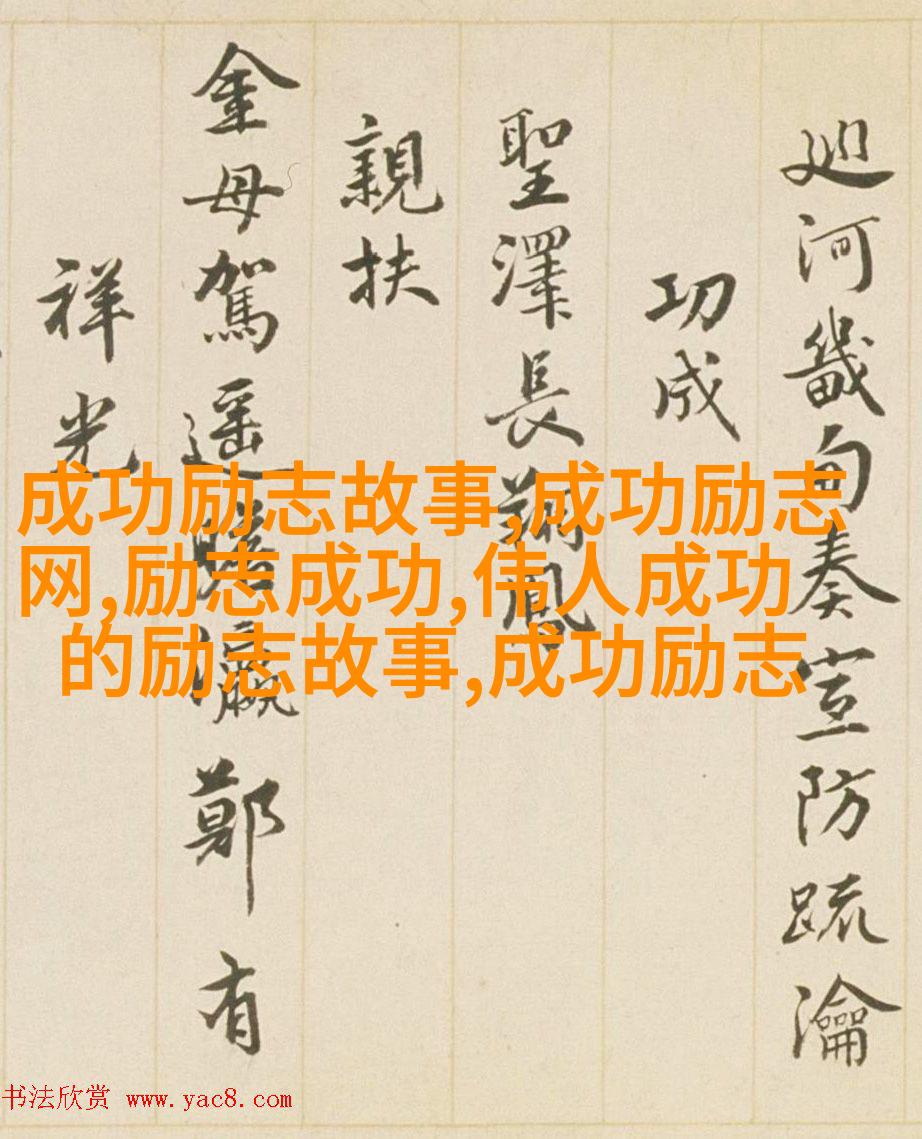 廵河畿甸奏宣防疏瀹
功成
聖澤長翔鳳
親扶
金母駕遥瞻瀛鄭有
祥光
成功励志故事,成功励志
网,励志成功,伟人成功
的励志故事,成功励志
书法欣赏 www.yac8.com